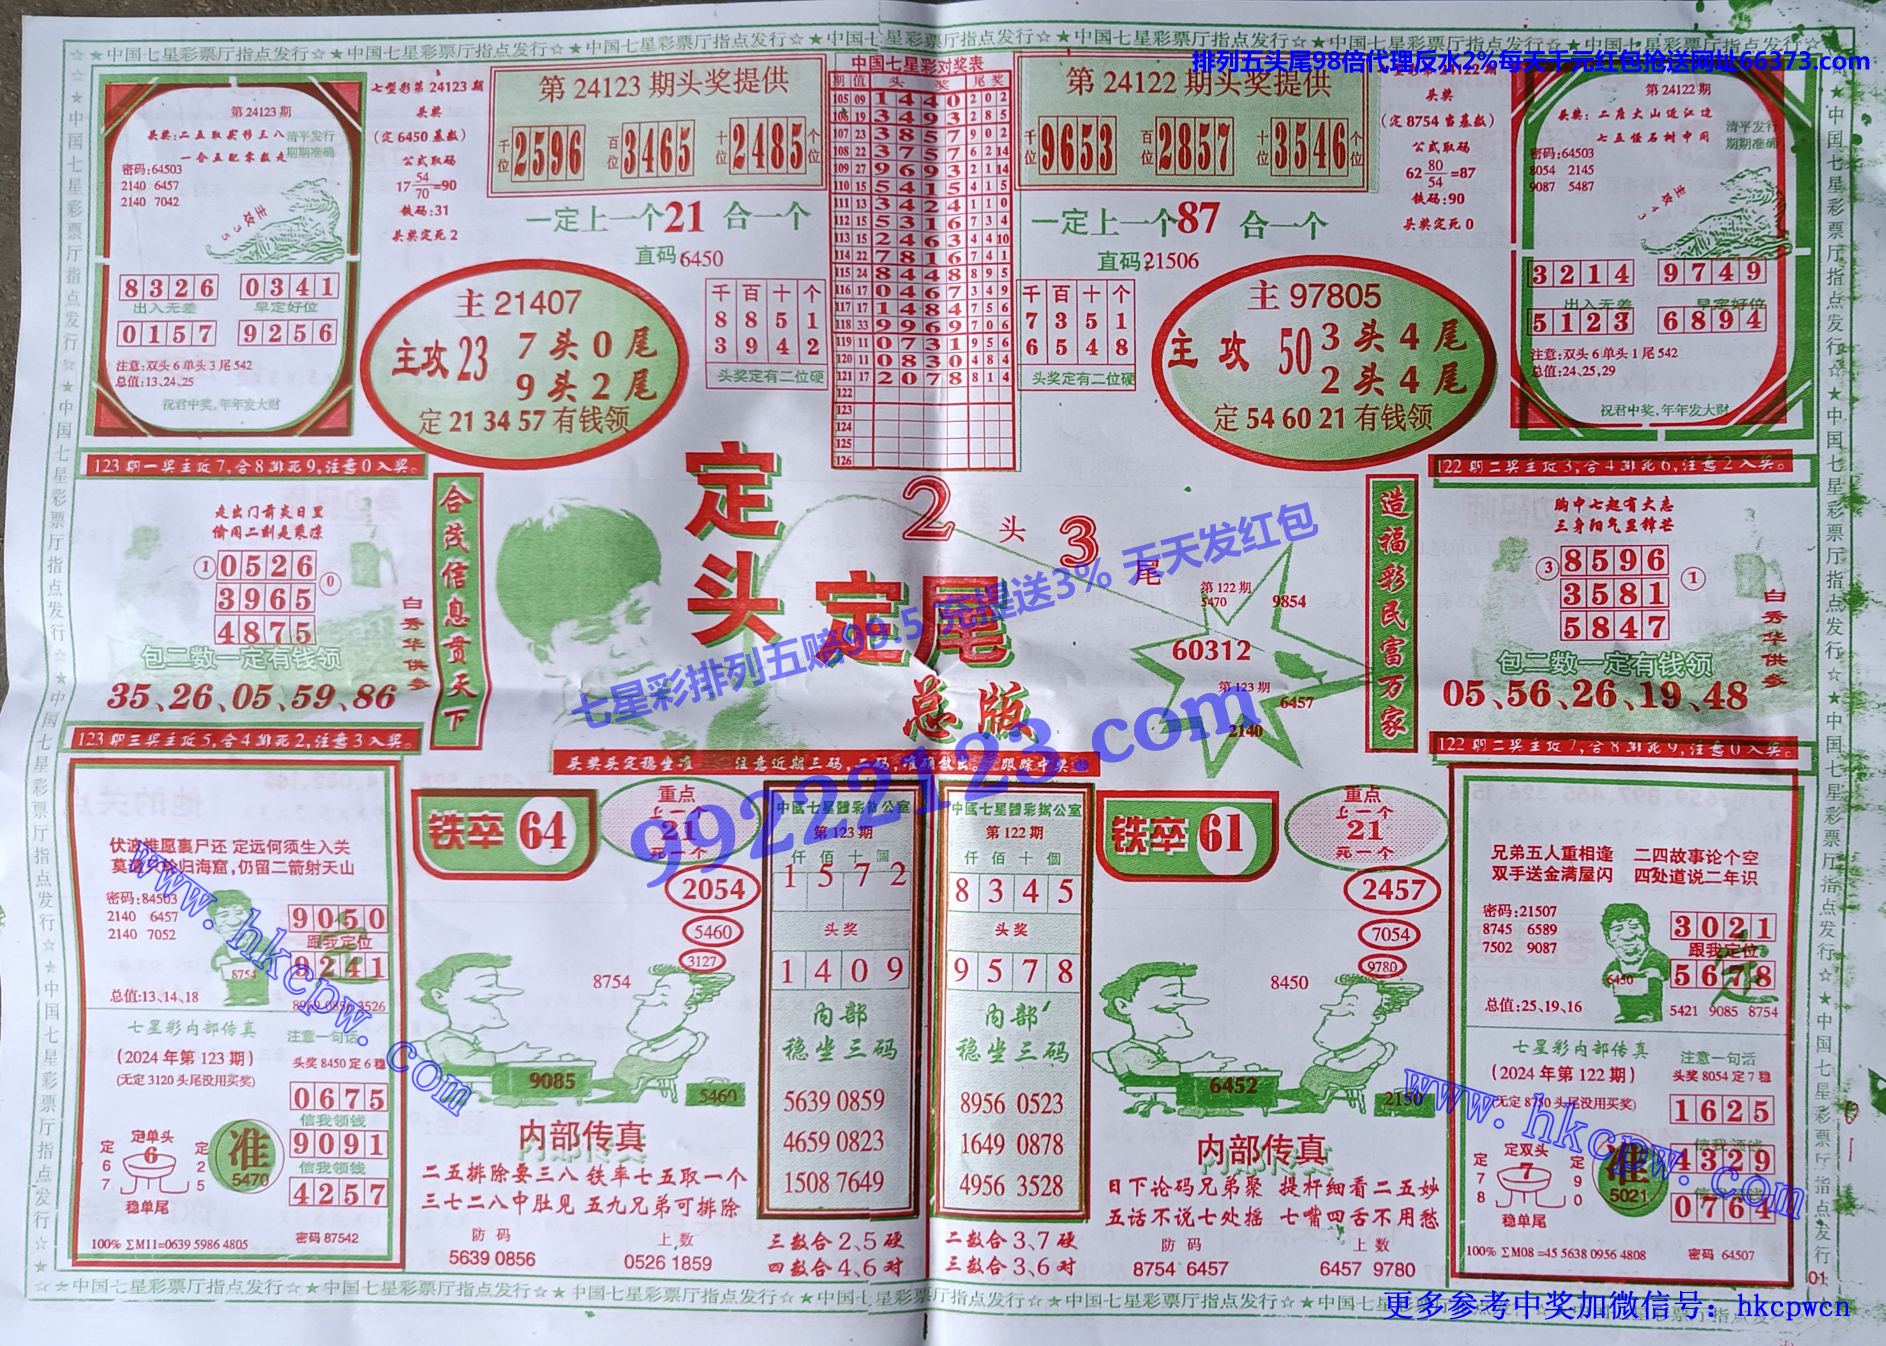 ☆★中国七星彩票厅指点发行☆★中国七星彩票厅指点发行☆★中国七星彩票厅指点发行☆
排列五头尾98倍代理反水2%每天千元红包抢送网址66373.com
第 24123 期
头奖:二五取买移三八
一合五配零数走
清平发行
期期准确
密码:64503
2140 6457
2140 7042
主攻35
8326 0341
出入无差 早定好位
0157 9256
注意:双头 6 单头 3 尾 542
总值:13,24,25
祝君中奖,年年发大财
七型彩第 24123 期
头奖
(定 6450 基数)
公式取码
17 54/70 =90
铁码:31
头奖定死 2
第 24123 期头奖提供
千位 2596 百位 3465 十位 2485 个位
一定上一个21 合一个
直码6450
主 21407
主攻 23 7 头 0 尾
9 头 2 尾
定 21 34 57 有钱领
千百十个
8851
3942
头奖定有二位硬
中国七星彩对奖表
期 值 头奖 尾奖
105 09 1440 202
106 19 3493 285
107 23 3857 902
108 22 3757 6214
109 27 9693 2114
110 15 5415 415
111 13 3424 110
112 15 5316 734
113 15 2463 4410
114 22 7816 741
115 24 8448 895
116 17 0467 349
117 17 1484 756
118 33 9969 706
119 11 0731 956
120 11 0830 484
121 17 2078 814
122
123
124
125
126
第 24122 期头奖提供
千位 9653 百位 2857 十位 3546 个位
一定上一个87 合一个
直码21506
千百十个
7351
6548
头奖定有二位硬
主 97805
主攻 50 3 头 4 尾
2 头 4 尾
定 54 60 21 有钱领
头奖
(定 8754 当基数)
公式取码
62 80/54 =87
铁码:90
头奖定死 0
第 24122 期
头奖:二座大山近江边
七五怪石树中间
清平发行
期期准确
密码:64503
8054 2145
9087 5487
主攻43
3214 9749
出入无差 早定好位
5123 6894
注意:双头 6 单头 1 尾 542
总值:24,25,29
祝君中奖,年年发大财
123 期一奖主攻 7,合 8 排死 9,注意 0 入奖。
走出门前炎日里
偷闲二刻是乘凉
① 0526 ⓪
3965
4875
包二数一定有钱领
35、26、05、59、86
白秀华供参
123 期三奖主攻 5,合 4 排死 2,注意 3 入奖。
合茂信息贯天下
定头定尾
总版
2 头 3 尾
七星彩排列五赔99.5 充提送3% 天天发红包
99222123.com
第 122 期
5470 9854
60312
第 123 期
6457
2140
造福彩民富万家
122 期二奖主攻 3,合 4 排死 6,注意 2 入奖。
胸中七起有大志
三身阳气显锋芒
③ 8596 ①
3581
5847
包二数一定有钱领
05、56、26、19、48
白秀华供参
122 期二奖主攻 7,合 8 排死 9,注意 0 入奖。
伏波惟愿裹尸还 定远何须生入关
仍留二箭射天山
密码:84503
2140 6457
2140 7052
8754
总值:13,14,18
9050
跟我定位
9241
8969 0856 3526
七星彩内部传真
(2024 年第 123 期)
(无定 3120 头尾没用买奖)
注意一句话
头奖 8450 定 6 稳
0675
信我领钱
9091
信我领钱
4257
定67
定单头
6
稳单尾
定25
准
5470
100% ΣM11=0639 5986 4805
密码 87542
www.hkcpw.com
铁卒 64
重点
上一个
21
死一个
2054
5460
3127
8754
9085
5460
内部传真
二五排除要三八 铁率七五取一个
三七二八中肚见 五九兄弟可排除
防码
5639 0856
上数
0526 1859
中國七星體彩辦公室
第 123 期
仟佰十個
1572
头奖
1409
内部
稳坐三码
5639 0859
4659 0823
1508 7649
三数合 2、5 硬
四数合 4、6 对
中國七星體彩辦公室
第 122 期
仟佰十個
8345
头奖
9578
内部
稳坐三码
8956 0523
1649 0878
4956 3528
二数合 3、7 硬
三数合 3、6 对
铁卒 61
重点
上一个
21
死一个
2457
7054
9780
8450
6452
2150
内部传真
日下论码兄弟聚 提杆细看二五妙
五话不说七处摇 七嘴四舌不用愁
防码
8754 6457
上数
6457 9780
兄弟五人重相逢 二四故事论个空
双手送金满屋闪 四处道说二年识
密码:21507
8745 6589
7502 9087
6450
总值:25,19,16
3021
跟我定位
5678
5421 9085 8754
七星彩内部传真
(2024 年第 122 期)
(无定 8750 头尾没用买奖)
注意一句话
头奖 8054 定 7 稳
1625
信我领钱
4329
0764
定78
定双头
7
稳单尾
定90
准
5021
100% ΣM08 =45 5638 0956 4808
密码 64507
www.hkcpw.com
01
更多参考中奖加微信号：hkcpwcn